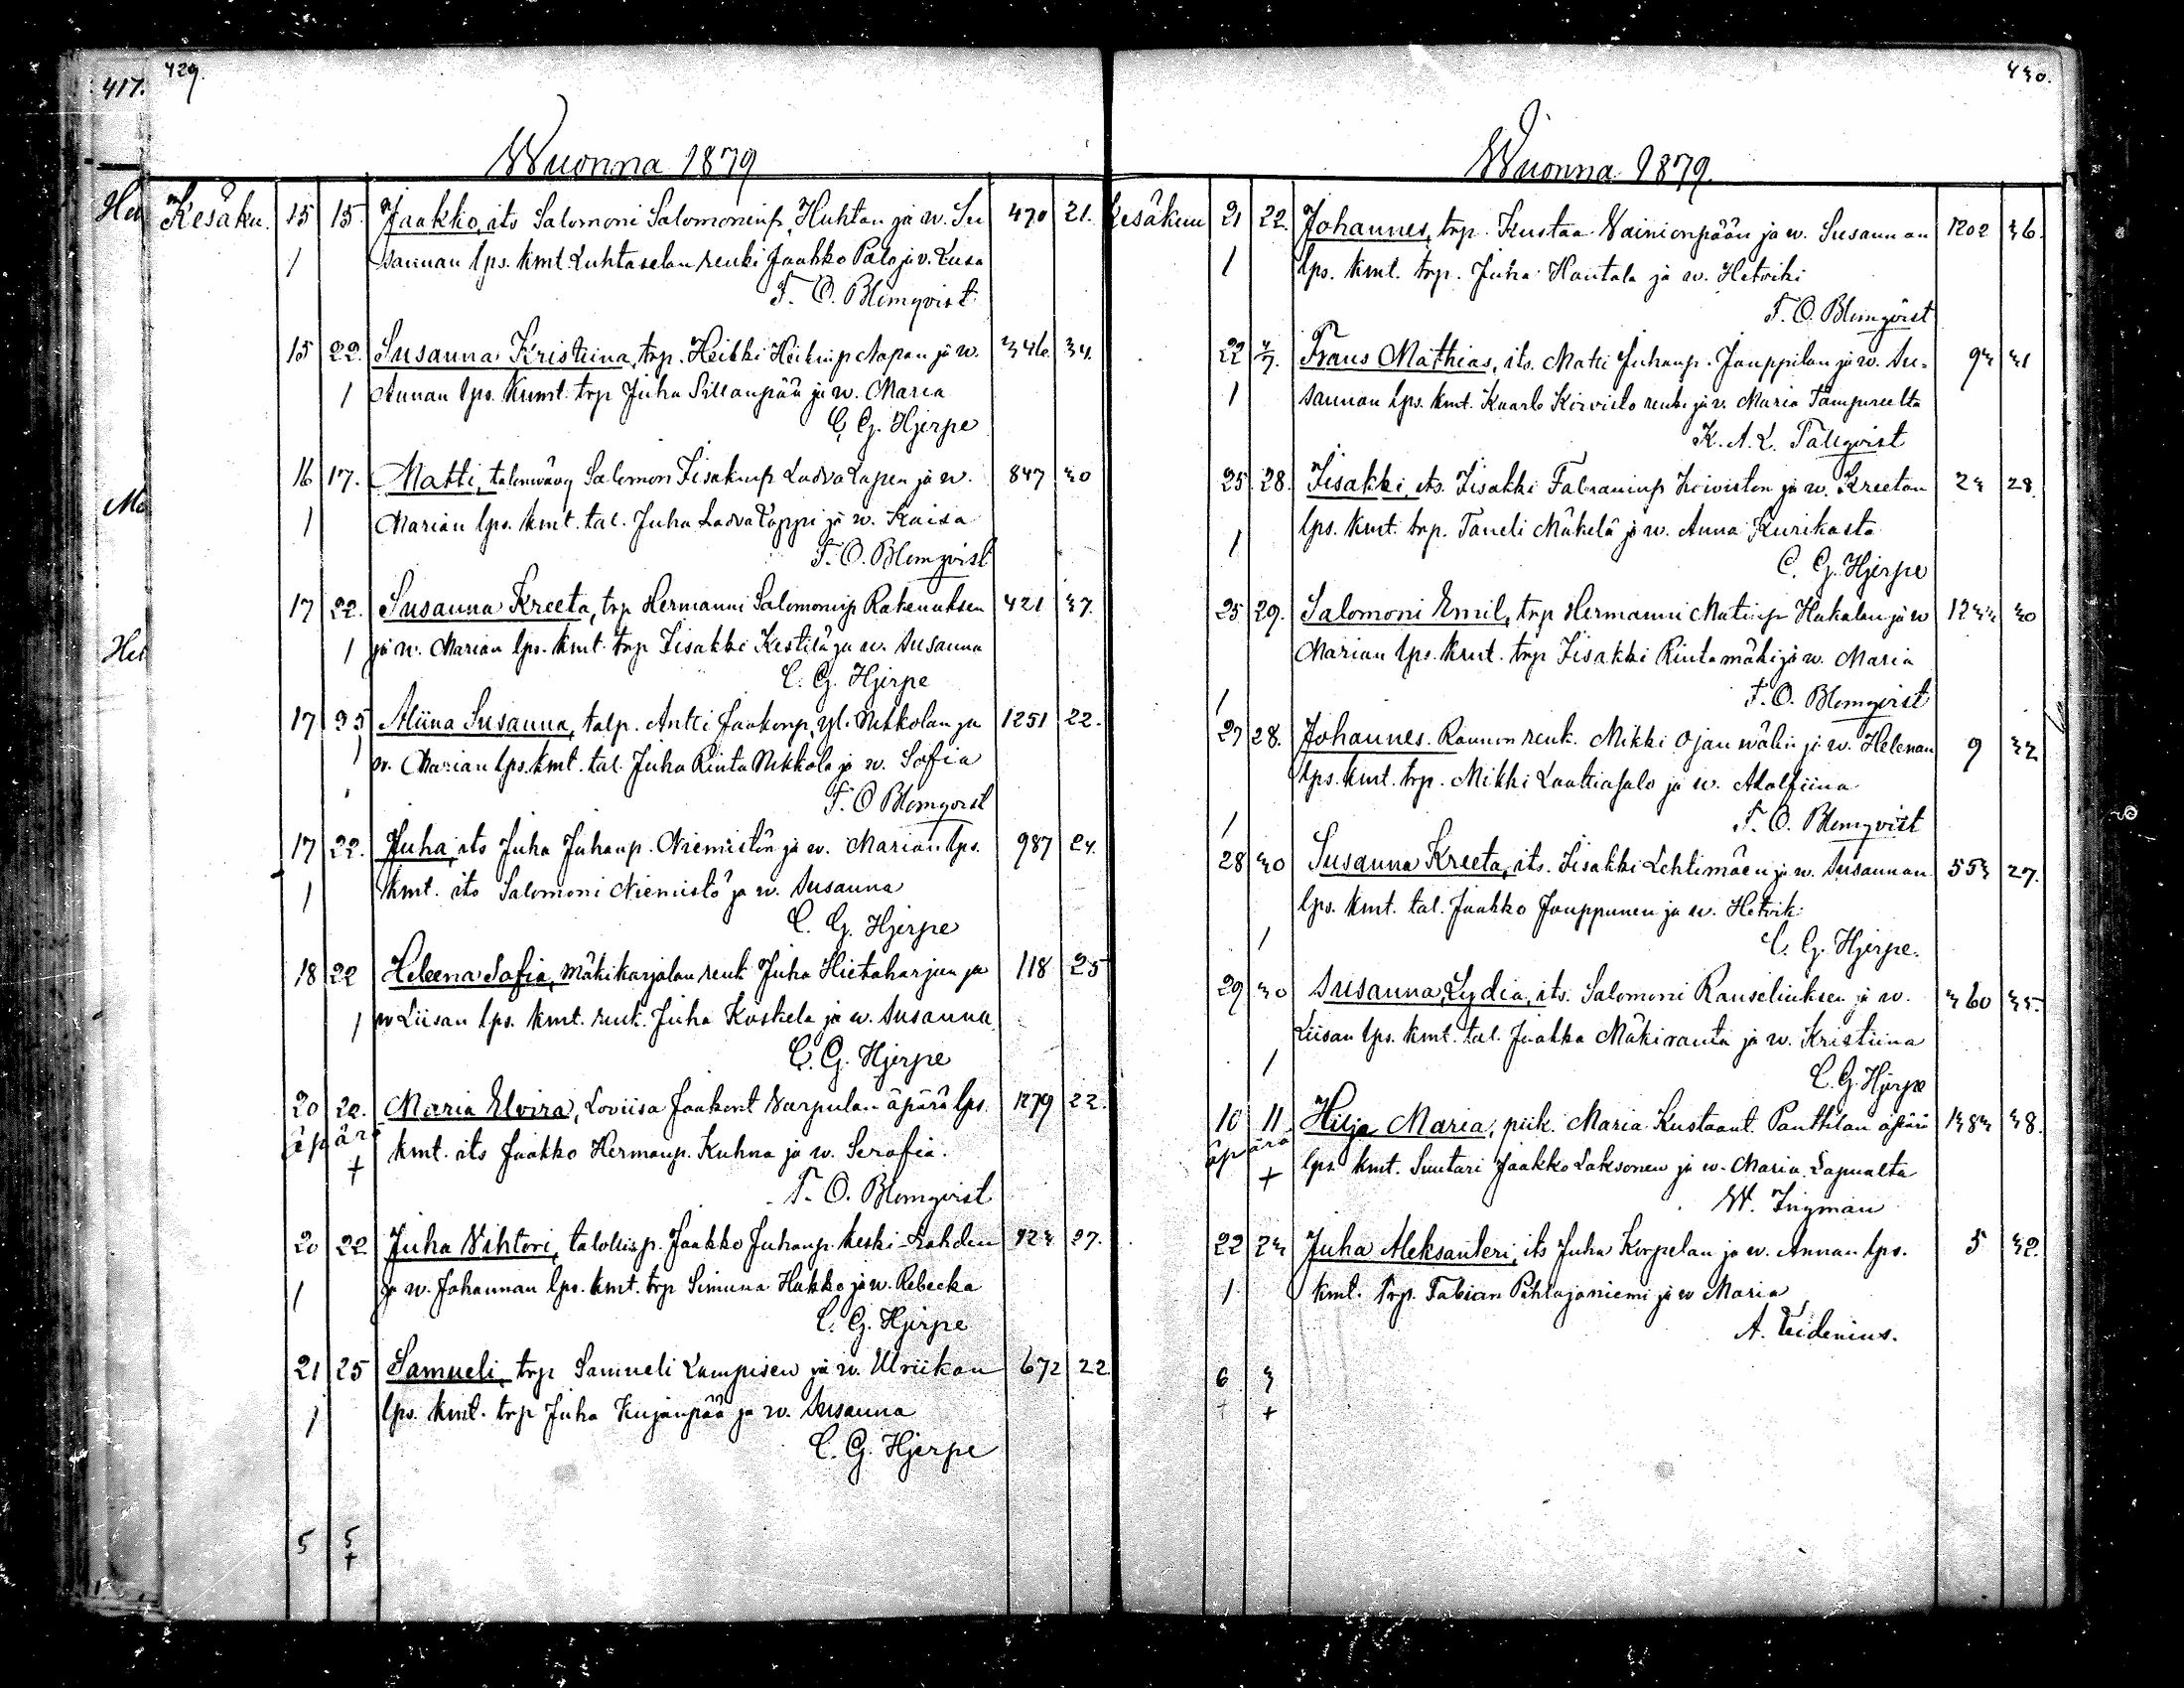 417.
429.
Wuonna 1879
Kesäku. 15 15. Jaakko, its Salomoni Salomoninp. Huhtan ja w. Su 470 21.
1 sannan lps. kmt. Luhtaselan renki Jaakko Palo ja v. Liisa
F. O. Blomqvist
15 22. Susanna Kristiina, trp. Heikki Heikinp Aapan ja w. 346. 34.
1 Annan lps. kunt. trp Juha Sillanpää ja w. Maria
C. G. Hjerpe
16 17. Matti, talonwäwy Salomon Iisakinp Ladva Lapen ja w. 847 30
1 Marian lps. kmt. tal. Juha Ladva Lappi ja w. Kaisa
F. O. Blomqvist
17 22. Susanna Kreeta, trp Hermanni Salomoninp Rakenuksen 421 37.
1 ja w. Marian lps. kmt. trp Iisakki Kestilä ja w. Susanna
C. G. Hjerpe
17 25 Miina Susanna, talp. Antti Jaakonp. yli Nikkolan ja 1251 22.
1 w. Marian lps. kmt. tal. Juha Rinta Nikkola ja w. Sofia
F. O Blomqvist
17 22. Juha, its Juha Juhanp. Niemistön ja w. Marian lps. 987 24.
1 kmt. its Salomoni Niemistö ja w. Susanna
C. G. Hjerpe
18 22 Heleena Sofia, Mäkikarjalan renk Juha Hietaharjun ja 118 25
1 w Liisan lps. kmt. renk. Juha Koskela ja w. Susanna
C. G. Hjerpe
20 22. Maria Elvira, Loviisa Jaakont Varpulan äpärä lps. 1279 22.
äpärä + kmt. its Jaakko Hermanp. Kuhna ja w. Serafia.
F. O. Blomqvist
20 22 Juha Vihtori, talollisp. Jaakko Juhanp. Keski-Lahden 923 27.
1 ja w. Johannan lps. kmt. trp Simuna Hakko ja w. Rebecka
C. G. Hjerpe
21 25 Samueli, trp Samueli Lampisen ja w. Ulriikan 672 22
1 lps. kmt. trp Juha Kujanpää ja w. Susanna
C. G. Hjerpe
5 5
+
430.
Wuonna 1879.
Kesäkuu 21 22. Johannes, trp. Kustaa Vainionpään ja w. Susannan 1202 36.
1 lps. kmt. trp. Juha Hautala ja w. Hetviki
F. O. Blomqvist
22 Frans Mathias, its. Matti Juhanp. Jauppilan ja w. Su- 93 31
1 sannan lps. kmt. Kaarlo Koivisto renki ja v. Maria Tampereelta
K. A. L. Tallqvist
25 28. Iisakki, its. Iisakki Fabianinp Koiviston ja w. Kreetan 23 28.
1 lps. kmt. trp. Taneli Mäkelä ja w. Anna Kurikasta
C. G. Hjerpe
25 29. Salomoni Emil, trp Hermanni Matinp Hakalan ja w 1233 30
Marian lps. kmt. trp Iisakki Rintamäki ja w. Maria
1 F. O. Blomqvist
27 28. Johannes. Raunon renk. Mikki Ojanwälin ja w. Helenan 9 32
lps. kmt. trp. Mikki Laattiasalo ja w. Adolfiina
1 F. O. Blomqvist
28 30 Susanna Kreeta, its. Iisakki Lehtimäen ja w. Susannan 553 27.
lps. kmt. tal. Jaakko Jouppunen ja w. Hetvik
1 C. G. Hjerpe.
29 30 Susanna Lydia, its. Salomoni Ranseliuksen ja w. 360 35.
Liisan lps. kmt. tal. Jaakko Mäkiranta ja w. Kristiina
1 C. G. Hjerpe
10 11 Hilja Maria, piik. Maria Kustaant. Panttilan äpärä 1383 38.
äpärä + lps. kmt. Suutari Jaakko Laksonen ja w. Maria Lapualta
W. Ingman
22 23 Juha Aleksanteri, its Juha Korpelan ja w. Annan lps. 5 32.
1. kmt. trp. Fabian Pihlajaniemi ja w Maria
A. Leidenius.
6 3
+ +